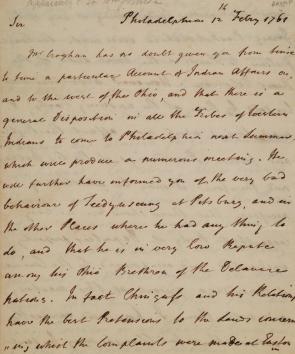 Sir Philadelphia 12th Febry 1761
Mr Croghan has no doubt given you from time
to time a particular Account of Indian Affairs on,
and to the west of, the Ohio, and that there is a
general Disposition in all the Tribes of Western
Indians to come to Philadelphia next Summer
which will produce a numerous meeting. He
will further have informed you of the very bad
behaviour of Teedyuscung at Pitsburg, and in
the other Places where he had any thing to
do, and that he is in very low Repute
among his Ohio Brethren of the Delaware
Nations. In fact and his Relations
have the best Pretensions to the Lands concern
"ing which the Complaints were made at Easton